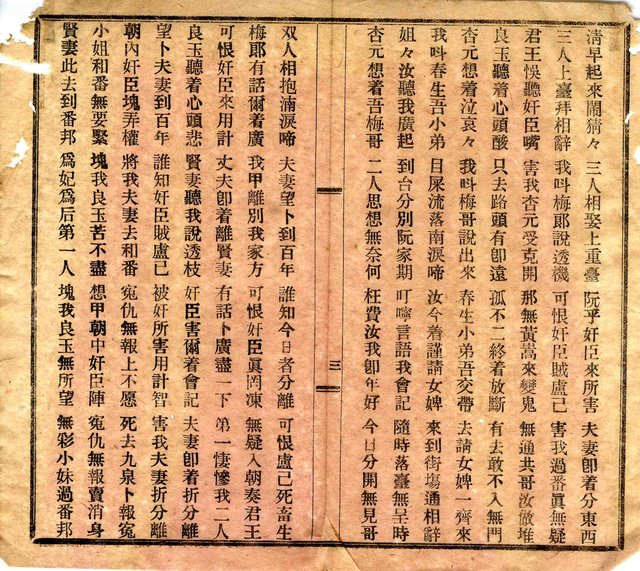 清早起來鬧猜々　三人相娶上重臺　阮乎奸臣來所害　夫妻卽着分東西
三人上臺拜相辭　我呌梅郞說透機　可恨奸臣賊盧己　害我過番眞無疑
君王悞聽奸臣嘴　害我杏元受克開　那無黃嵩來變鬼　無通共哥汝做堆
良玉聽着心頭酸　只去路頭有卽遠　孤不二終着放斷　有去敢不入無門
杏元想着泣哀々　我呌梅哥說出來　春生小弟吾交帶　去請女婢一齊來
我呌春生吾小弟　目屎流落南淚啼　汝今着謹請女婢　來到街塲通相辭
姐々汝聽我廣起　到台分別阮家期　叮嚀言語我會記　隨時落臺無呈時
杏元想着吾梅哥　二人思想無奈何　枉費汝我卽年好　今日分開無見哥
三
双人相抱湳淚啼　夫妻望卜到百年　誰知今日者分離　可恨盧己死畜生
梅郞有話爾着廣　我甲離別我家方　可恨奸臣眞罔凍　無疑入朝奏君王
可恨奸臣來用計　丈夫卽着離賢妻　有話卜廣盡一下　第一悽慘我二人
良玉聽着心頭悲　賢妻聽我說透枝　奸臣害爾着會記　夫妻卽着折分離
望卜夫妻到百年　誰知奸臣賊盧己　被奸所害用計智　害我夫妻折分離
朝內奸臣塊弄權　將我夫妻去和番　寃仇無報上不愿　死去九泉卜報寃
小姐和番無要緊　塊我良玉苦不盡　想甲朝中奸臣陣　寃仇無報賣消身
賢妻此去到番邦　爲妃爲后第一人　塊我良玉無所望　無彩小妹過番邦